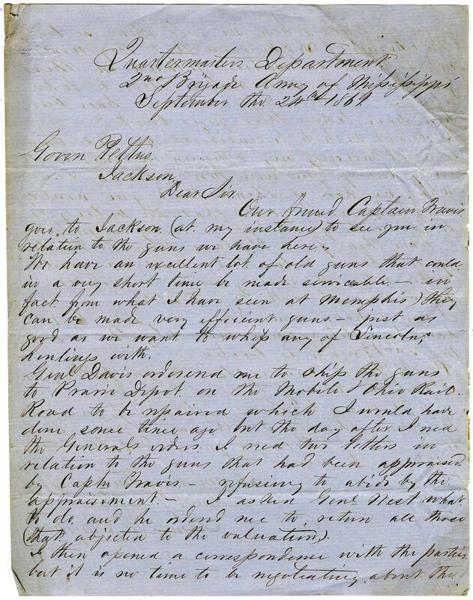 Quartermasters Department
2nd Brigade Army of Mississippi
September the 24th 1861
Govenr Pettus
Jackson
Dear Sir
Our friend Captain Travis
goes to Jackson (at my instance) to see you in
relation to the guns we have here,
We have an excellent lot of old guns that could
in a very short time be made servicable — in
fact from what I have seen at Memphis) they
can be made very efficient guns — just as
good as we want to whip any of Lincolns
hirelings with.
Genl Davis ordered me to ship the guns
to Prairie Depot on the Mobile & Ohio Rail-
Road to be repaired which I would have
done some time ago but the day after I recd
the Generals orders I recd two letters in
relation to the guns that had been appraised
by Captn Travis — refusing to abide by the
appraisement — I asked Genl West what
to do and he ordered me to return all those
(that objected to the valuation).
I then opened a correspondence with the parties
but it is no time to be negotiating about the